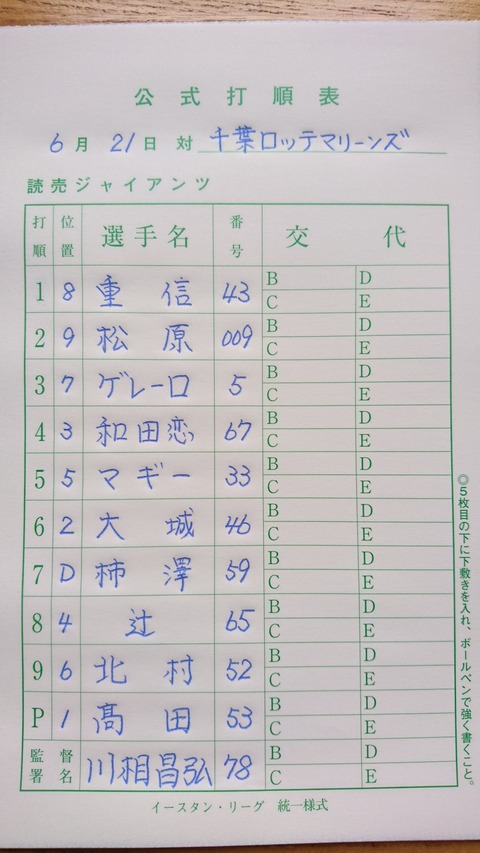 公式打順表
6月21日 対 千葉ロッテマリーンズ
読売ジャイアンツ
打順 位置 選手名 番号 交代
1 8 重信 43 B D C E
2 9 松原 009 B D C E
3 7 ゲレーロ 5 B D C E
4 3 和田恋 67 B D C E
5 5 マギー 33 B D C E
6 2 大城 46 B D C E
7 D 柿澤 59 B D C E
8 4 辻 65 B D C E
9 6 北村 52 B D C E
P 1 髙田 53 B D C E
監督署名 川相昌弘 78 B D C E
イースタン・リーグ 統一様式
◎5枚目の下に下敷きを入れ、ボールペンで強く書くこと。